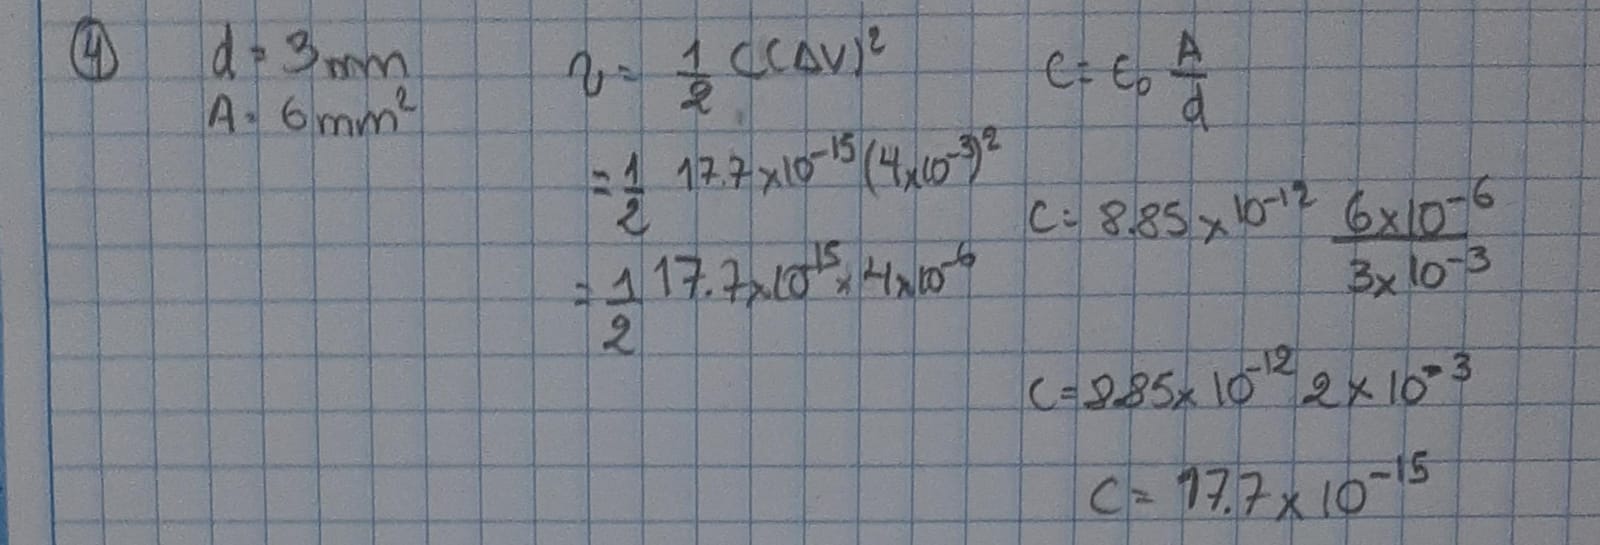 ④ d = 3mm
A = 6mm²
U = 1/2 C(ΔV)²
= 1/2 17.7×10⁻¹⁵(4×10⁻³)²
= 1/2 17.7×10⁻¹⁵×4×10⁻⁶
C = ϵ₀ A/d
C = 8.85×10⁻¹² 6×10⁻⁶/3×10⁻³
C = 8.85×10⁻¹² 2×10⁻³
C = 17.7×10⁻¹⁵